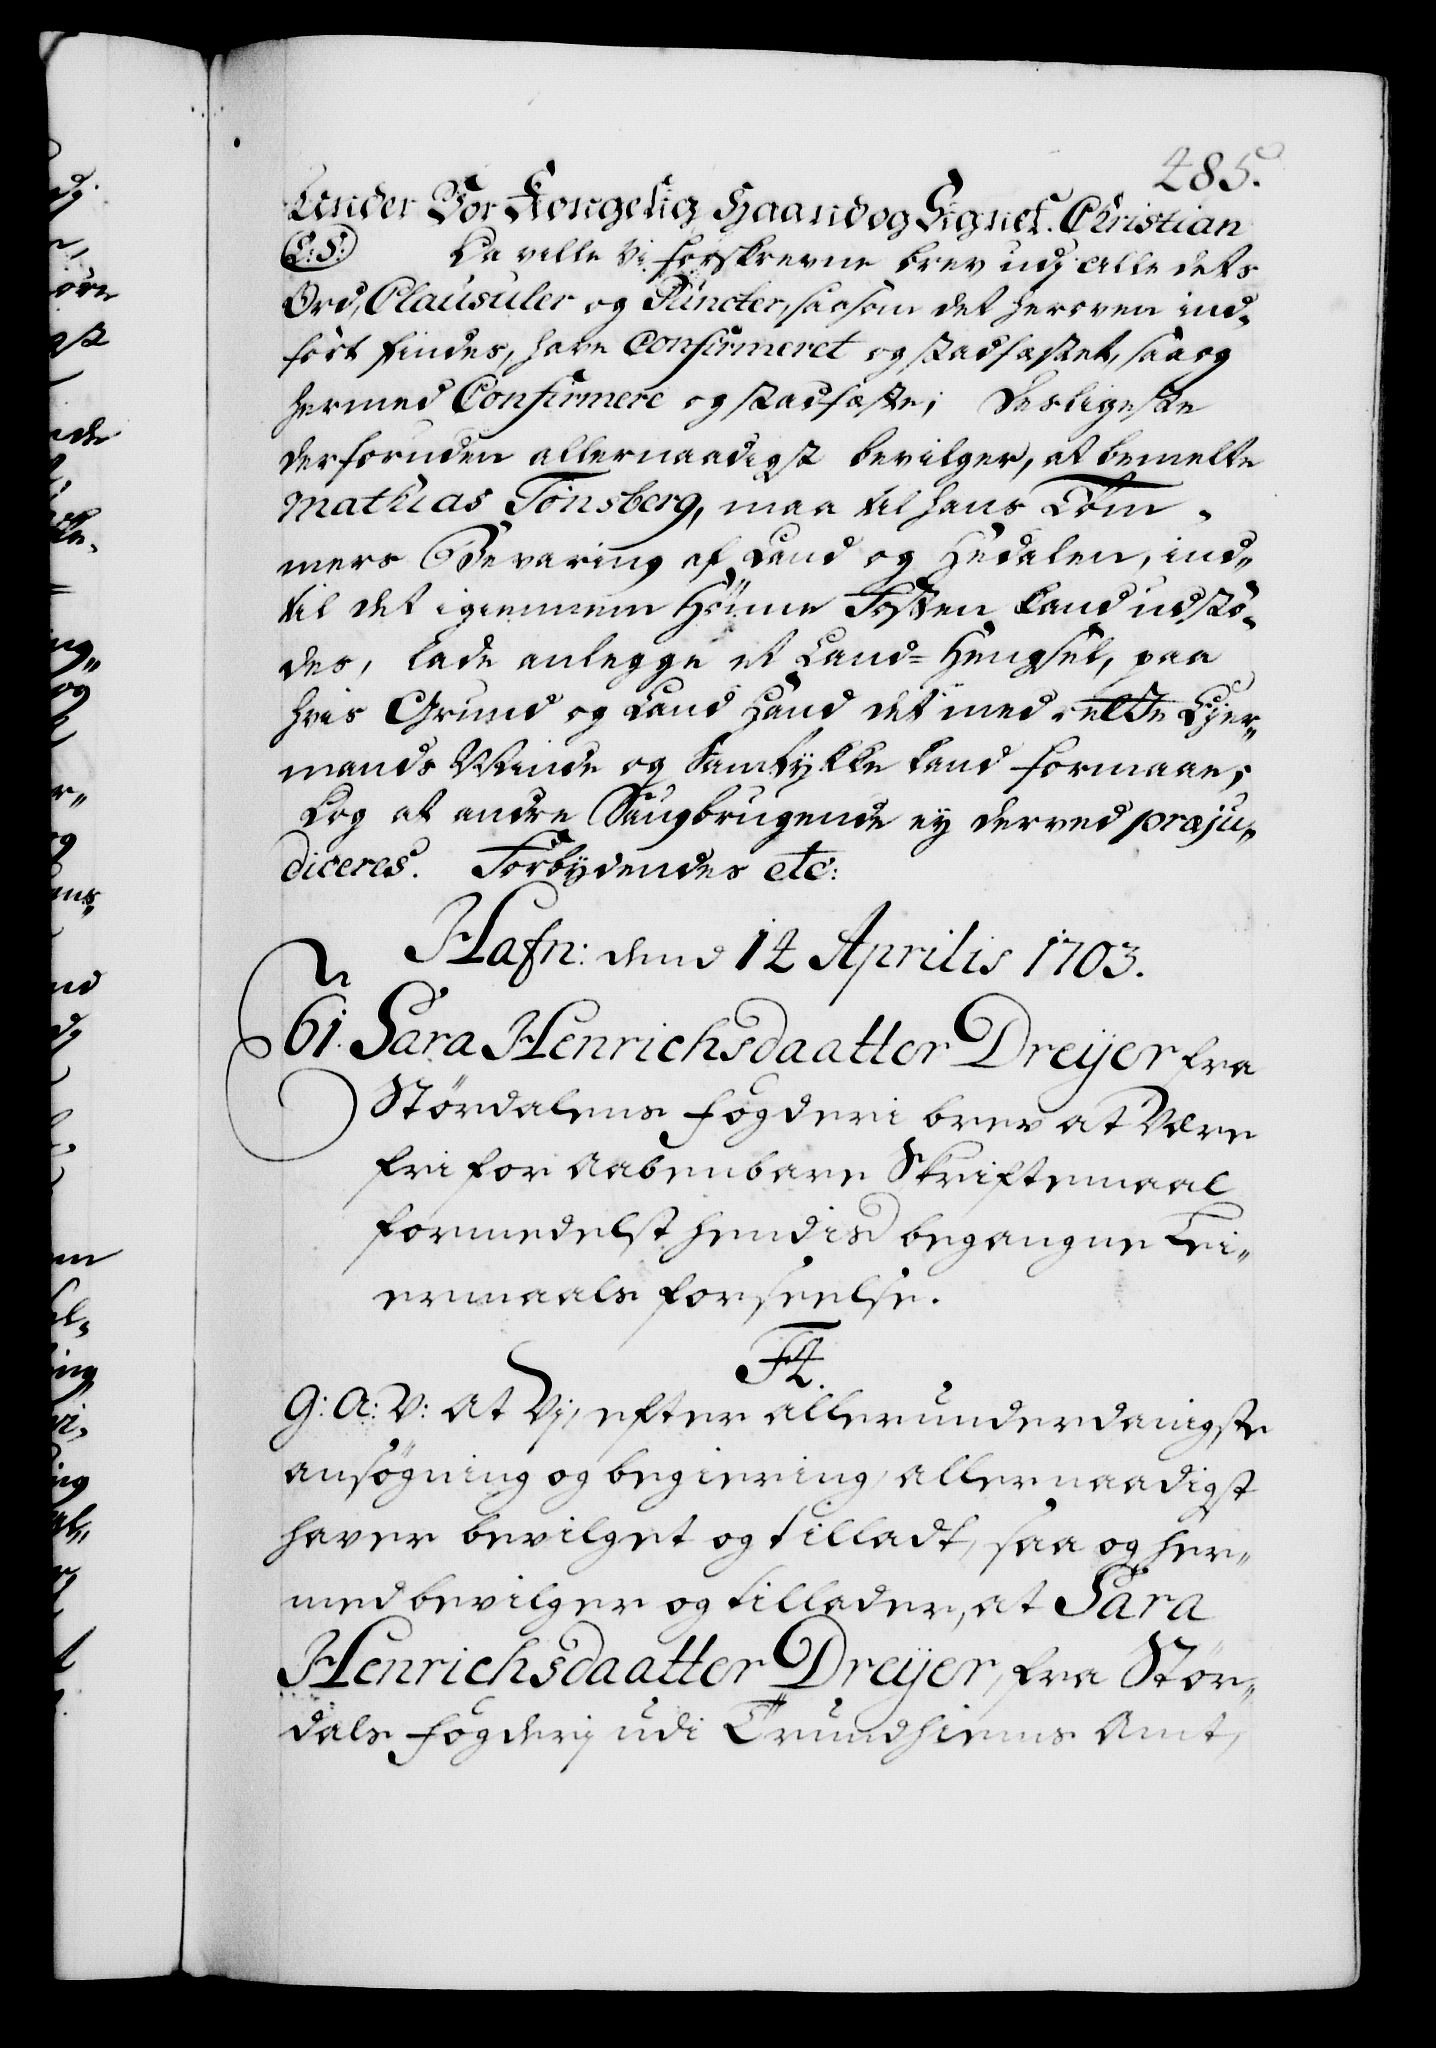 485.
Under Vor Kongelig Haand og Signet. Christian
(L:S:) Da ville Vi forskrevne brev udj alle dets
Ord, Clausuler og Puncter, saasom det heroven ind-
ført findes, have Confirmeret og stadfæstet, saa og
hermed Confirmere og stadfæste; Desligeste
derforuden allernaadigst bevilger, at bemelte
Mathias Tønsberg, maa til hans Tøm-
mers Bevaring af Land og Hedalen, ind-
til det igiennem Hønne Fossen kand udstø-
des, lade anlegge et Land= Hengsel, paa
hvis Grund og Land Hand det med Ejer-
mands Minde og Samtykke kand formaae;
Dog at andre Saugbrugende ey derved præju-
diceres. Forbydendes etc:
Hafn: dend 14 Aprilis 1703.
61. Sara Henrichsdaatter Dreyer fra
Størdalens fogderi brev at være
fri for aabenbare Skriftemaal
formedelst hendis begangne Lei-
ermaals forseelse.
F4.
G: A: V: at Vj, efter allerunderdanigste
ansøgning og begiering, allernaadigst
haver bevilget og tilladt, saa og her-
med bevilger og tillader, at Sara
Henrichsdaatter Dreyer, fra Stør-
dals fogderj udi Trundhiems Amt,